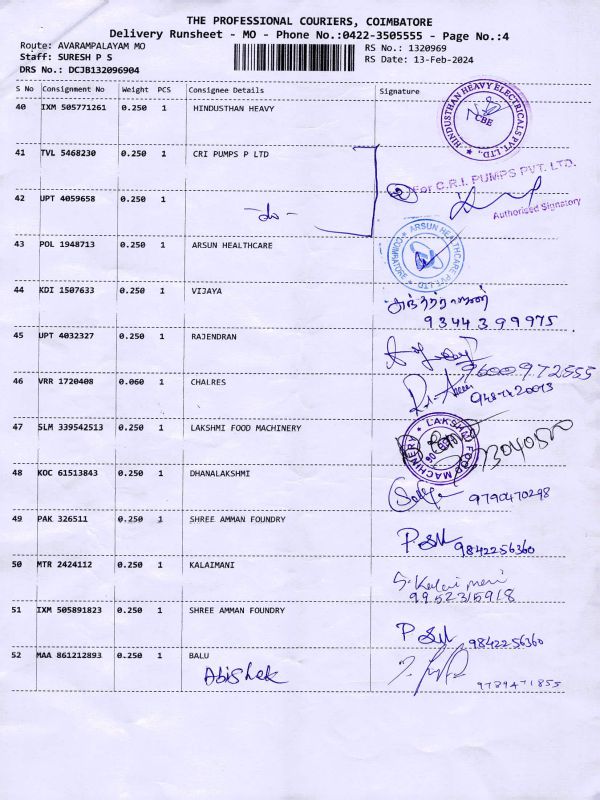 THE PROFESSIONAL COURIERS, COIMBATORE
Delivery Runsheet - MO - Phone No.:0422-3505555 - Page No.:4
Route: AVARAMPALAYAM MO
RS No.: 1320969
Staff: SURESH P S
RS Date: 13-Feb-2024
DRS No.: DCJB132096904
S No Consignment No Weight PCS Consignee Details Signature
40 IXM 505771261 0.250 1 HINDUSTHAN HEAVY
HINDUSTHAN HEAVY ELECTRICALS PVT. LTD.
CBE
41 TVL 5468230 0.250 1 CRI PUMPS P LTD
2 For C.R.I. PUMPS PVT. LTD.
42 UPT 4059658 0.250 1
- do -
Authorised Signatory
43 POL 1948713 0.250 1 ARSUN HEALTHCARE
ARSUN HEALTHCARE PVT LTD
COIMBATORE
44 KDI 1507633 0.250 1 VIJAYA
9344399975
45 UPT 4032327 0.250 1 RAJENDRAN
9600972555
46 VRR 1720408 0.060 1 CHALRES
47 SLM 339542513 0.250 1 LAKSHMI FOOD MACHINERY
LAKSHMI FOOD MACHINERY
48 KOC 61513843 0.250 1 DHANALAKSHMI
9790470298
49 PAK 326511 0.250 1 SHREE AMMAN FOUNDRY
9842256360
50 MTR 2424112 0.250 1 KALAIMANI
S. Kalaimani
9952315918
51 IXM 505891823 0.250 1 SHREE AMMAN FOUNDRY
9842256360
52 MAA 861212893 0.250 1 BALU
Abishek
9789471855